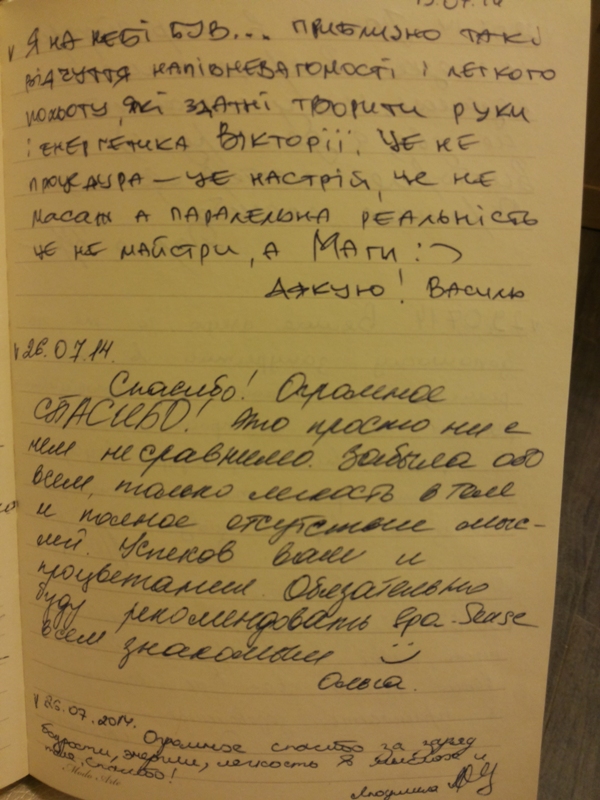 13.07.14
V Я на небі був... приблизно такі
відчуття напівневагомості і легкого
польоту, які здатні творити руки
і енергетика Вікторії. Це не
процедура — це настрій, це не
масаж а паралельна реальність
це не майстри, а Маги :)
Дякую! Василь
V 26.07.14.
Спасибо! Огромное
СПАСИБО! Это просто ни с
чем не сравнимо. Забыла обо
всем, только легкость в теле
и полное отсутствие мыс-
лей. Успехов вам и
процветания. Обязательно
буду рекомендовать Spa-Sense
всем знакомым
Ольга.
V 26.07.2014. Огромное спасибо за заряд
бодрости, энергии, легкость в мыслях и
теле. Спасибо!
Людмила